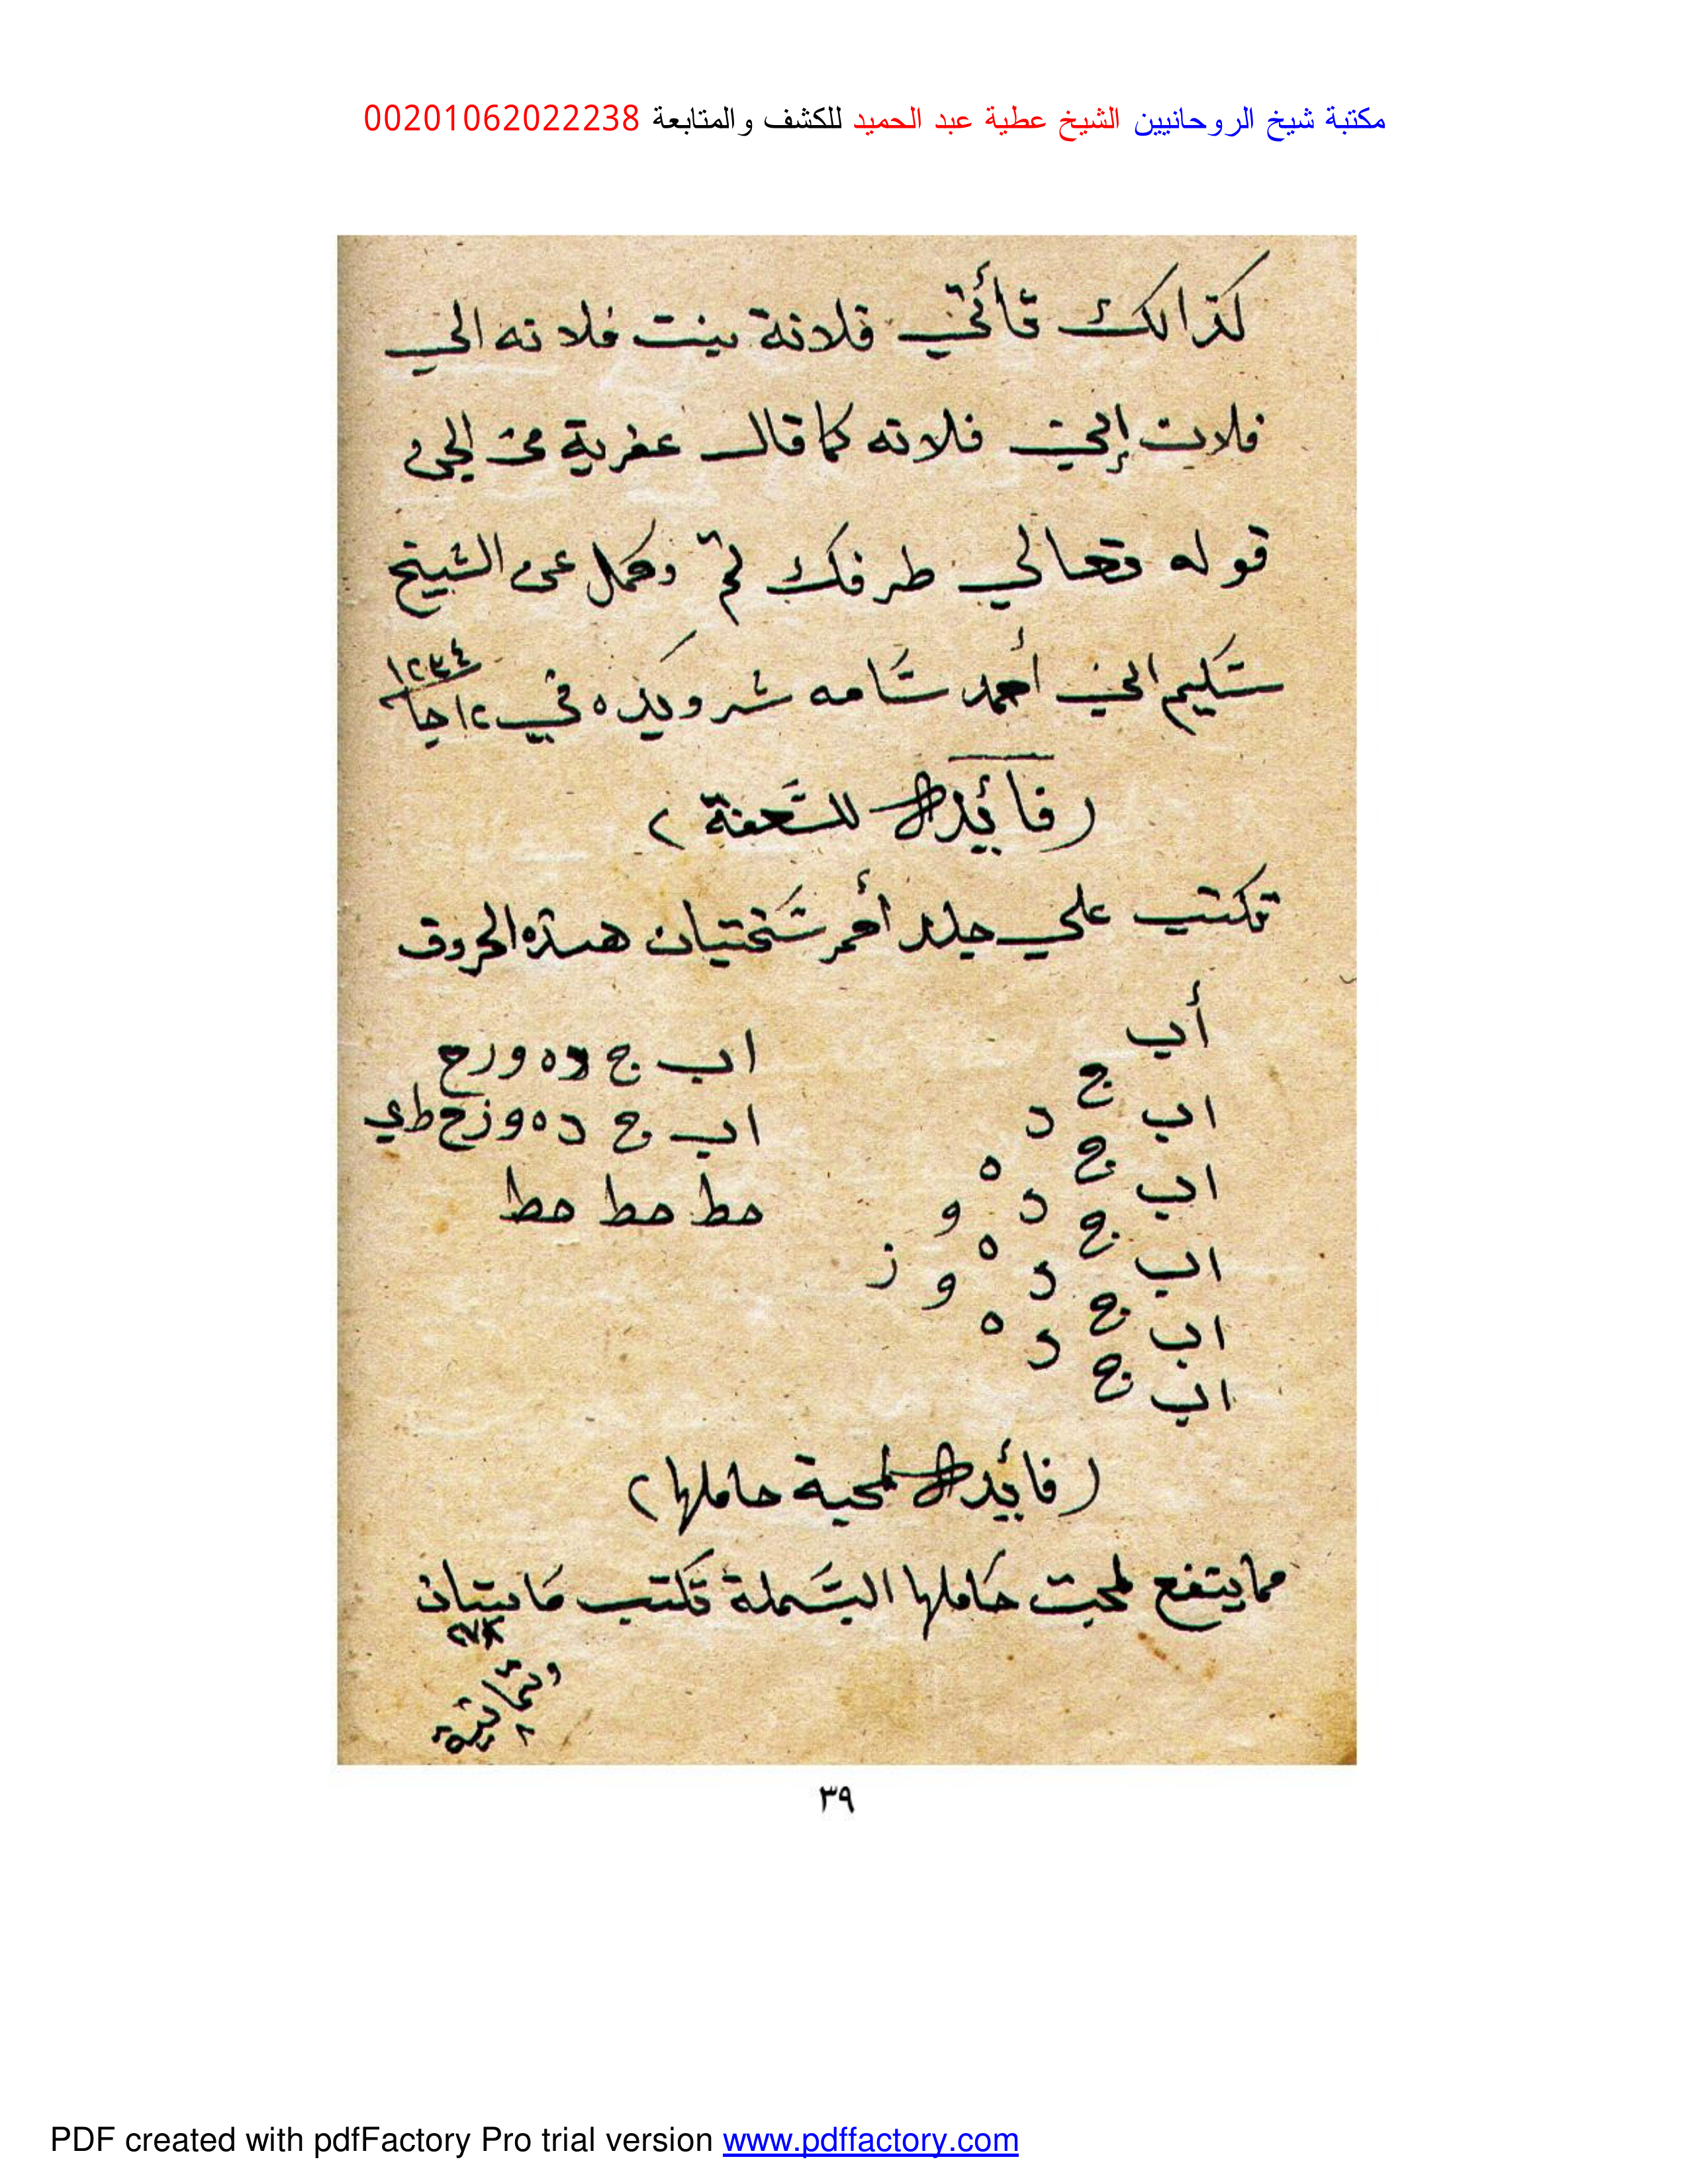 مكتبة شيخ الروحانيين الشيخ عطية عبد الحميد للكشف والمتابعة 00201062022238
كذالك تأتي فلانة بنت فلانه الي
فلان إلي فلانه كما قال عفرية من الجن
قوله تعالي طرفك تم وكمل عن الشيخ
سليم الي أحمد سامه شرويده في ١٢ جا ١٢٣٤
(فائيدة للسعفة)
تكتب علي جلد أحمر سختيان هذه الحروف
أب ج
اب ج د
اب ج د ه و
اب ج د ه و ز
اب ج د ه
اب ج
اب ج د ه و ز ح
اب ج د ه و ز ح ط ي
حط حط حط
(فائيدة لمحبة حاملها)
مما ينفع لمحبت حاملها البسملة تكتب مايتان
وثمانية
٣٩
PDF created with pdfFactory Pro trial version www.pdffactory.com